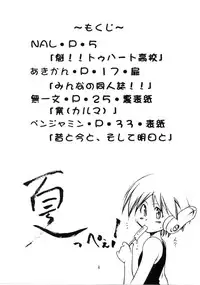 ～もくじ～
NAL・P・5
「俗！！トゥハート高校」
あきかん・P・17・扉
「みんなの同人誌！！」
無一文・P・25・裏表紙
「業(カルマ)」
ベンジャミン・P・33・表紙
「昔と今と、そして明日と」
夏
っぺぇ！